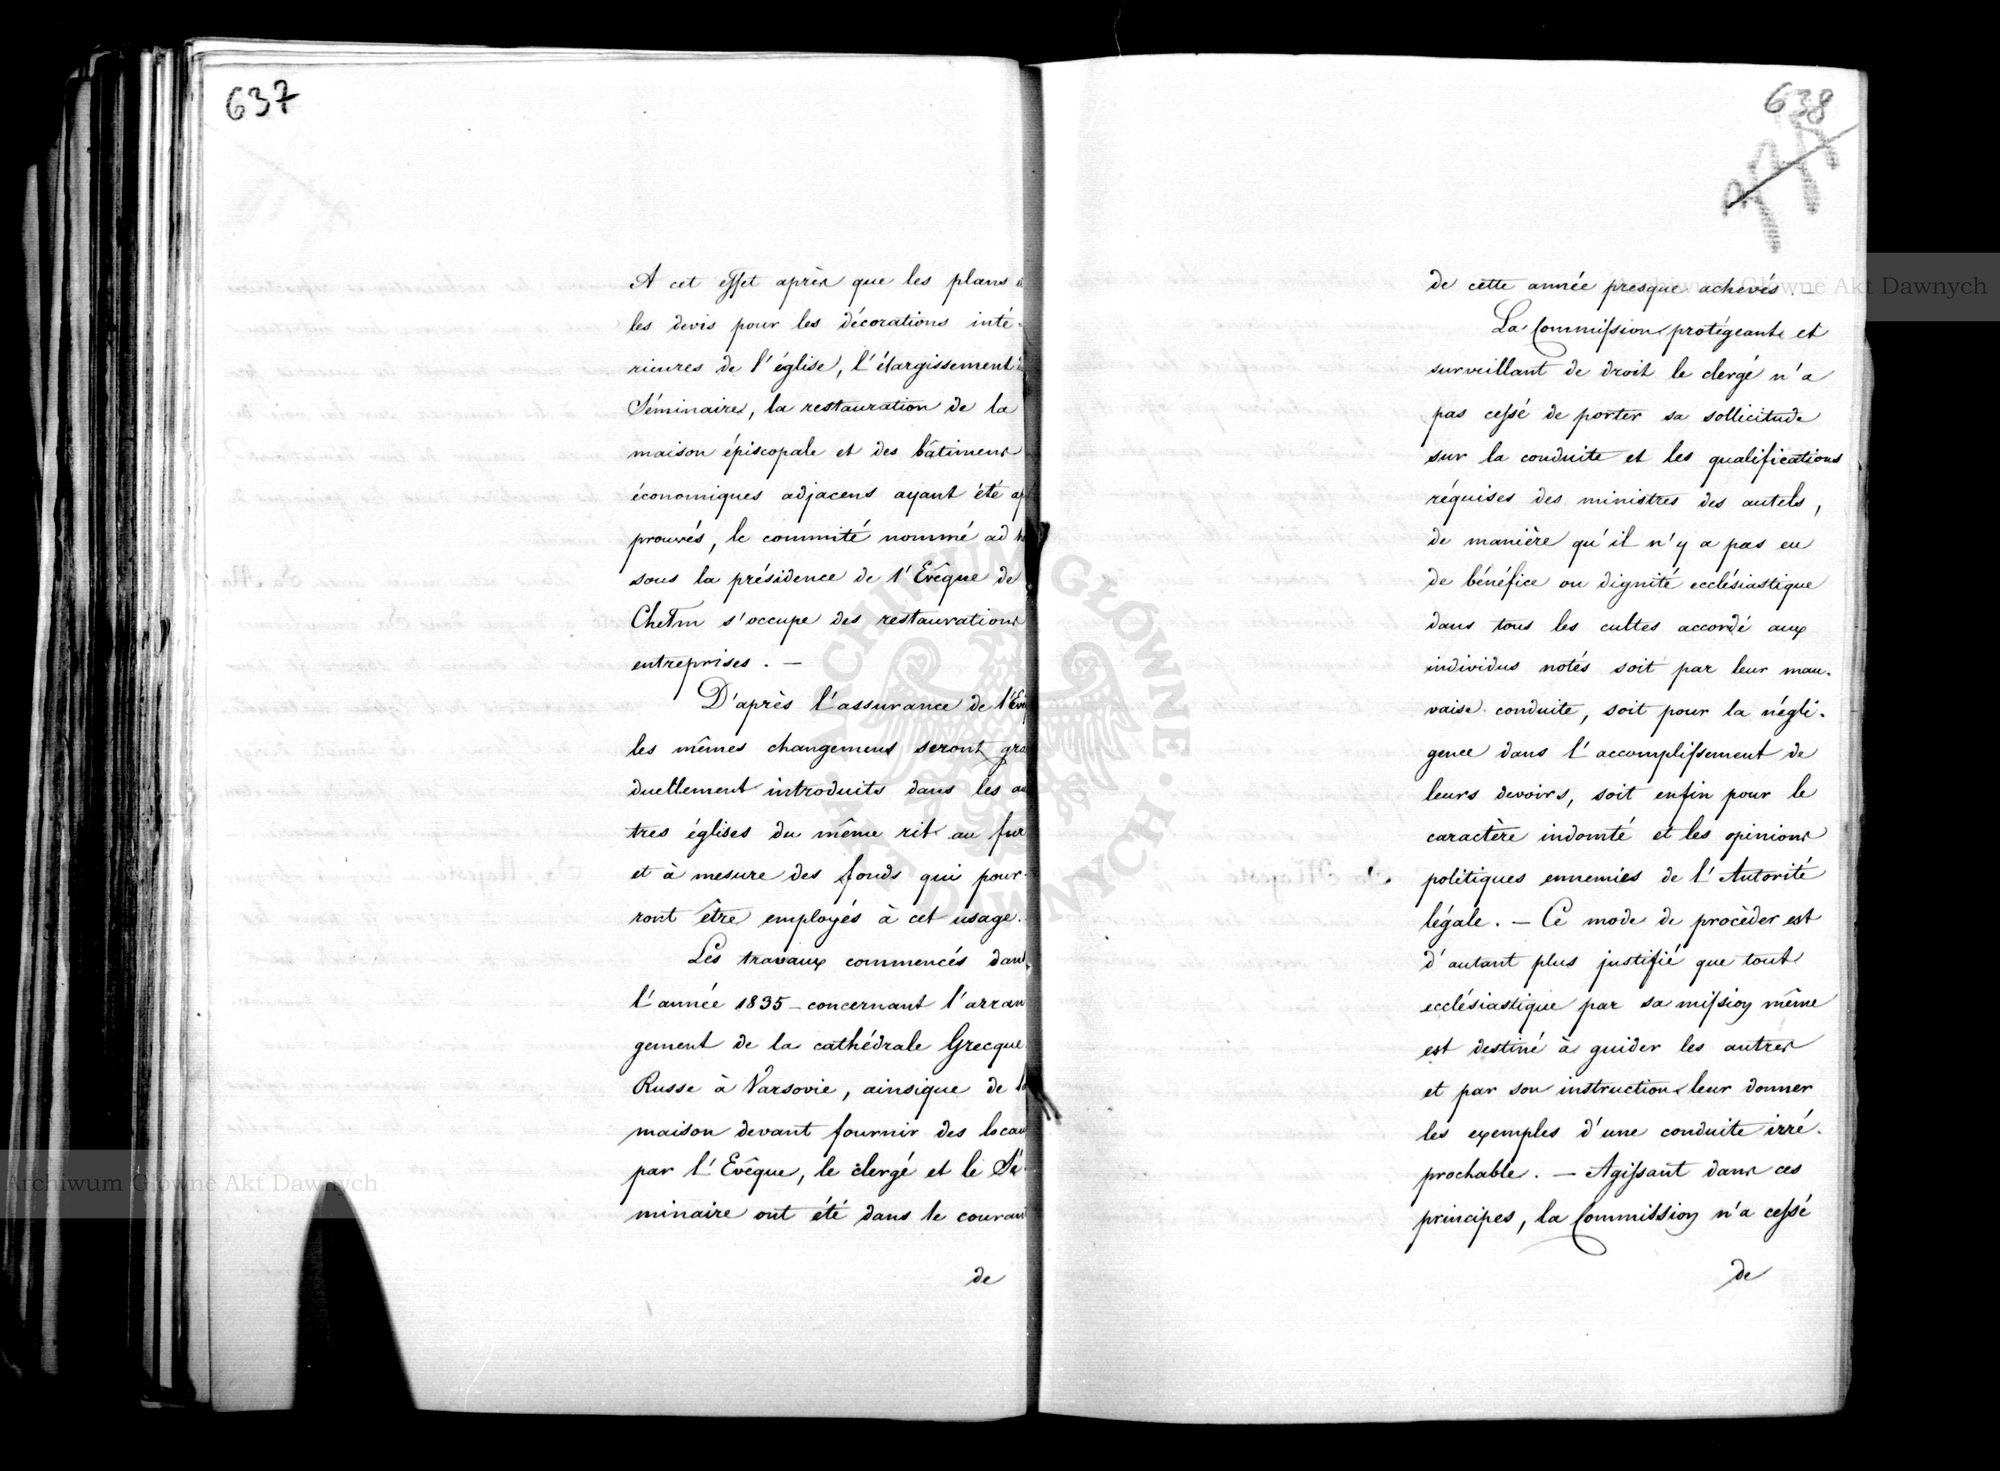 637
A cet effet après que les plans
les devis pour les décorations inté-
rieures de l'église, l'élargissement
Séminaire, la restauration de la
maison épiscopale et des bâtimens
économiques adjacens ayant été ap
prouvés, le commité nommé ad
sous la présidence de l'Evêque de
Chełm s'occupe des restaurations
entreprises. —
D'après l'assurance de l'Evê
les mêmes changemens seront gra
duellement introduits dans les au
tres églises du même rit au fur
et à mesure des fonds qui pour-
ront être employés à cet usage.
Les travaux commencés dans
l'année 1835 – concernant l'arran
gement de la cathédrale Grecque
Russe à Varsovie, ainsique de la
maison devant fournir des locau
par l'Evêque, le clergé et le Sé-
minaire ont été dans le courant
de
638
de cette année presque achevés. —
La Commission protégeant et
surveillant de droit le clergé n'a
pas cessé de porter sa sollicitude
sur la conduite et les qualifications
réquises des ministres des autels,
de manière qu'il n'y a pas eu
de bénéfice ou dignité ecclésiastique
dans tous les cultes accordé aux
individus notés soit par leur mau-
vaise conduite, soit pour la négli-
gence dans l'accomplissement de
leurs devoirs, soit enfin pour le
caractère indomté et les opinions
politiques ennemies de l'Autorité
légale. — Ce mode de procèder est
d'autant plus justifié que tout
ecclésiastique par sa mission même
est destiné à guider les autres
et par son instruction leur donner
les exemples d'une conduite irré-
prochable. — Agissant dans ces
principes, la Commission n'a cessé
de
Archiwum Główne Akt Dawnych
Archiwum Główne Akt Dawnych
ARCHIWUM GŁÓWNE AKT DAWNYCH